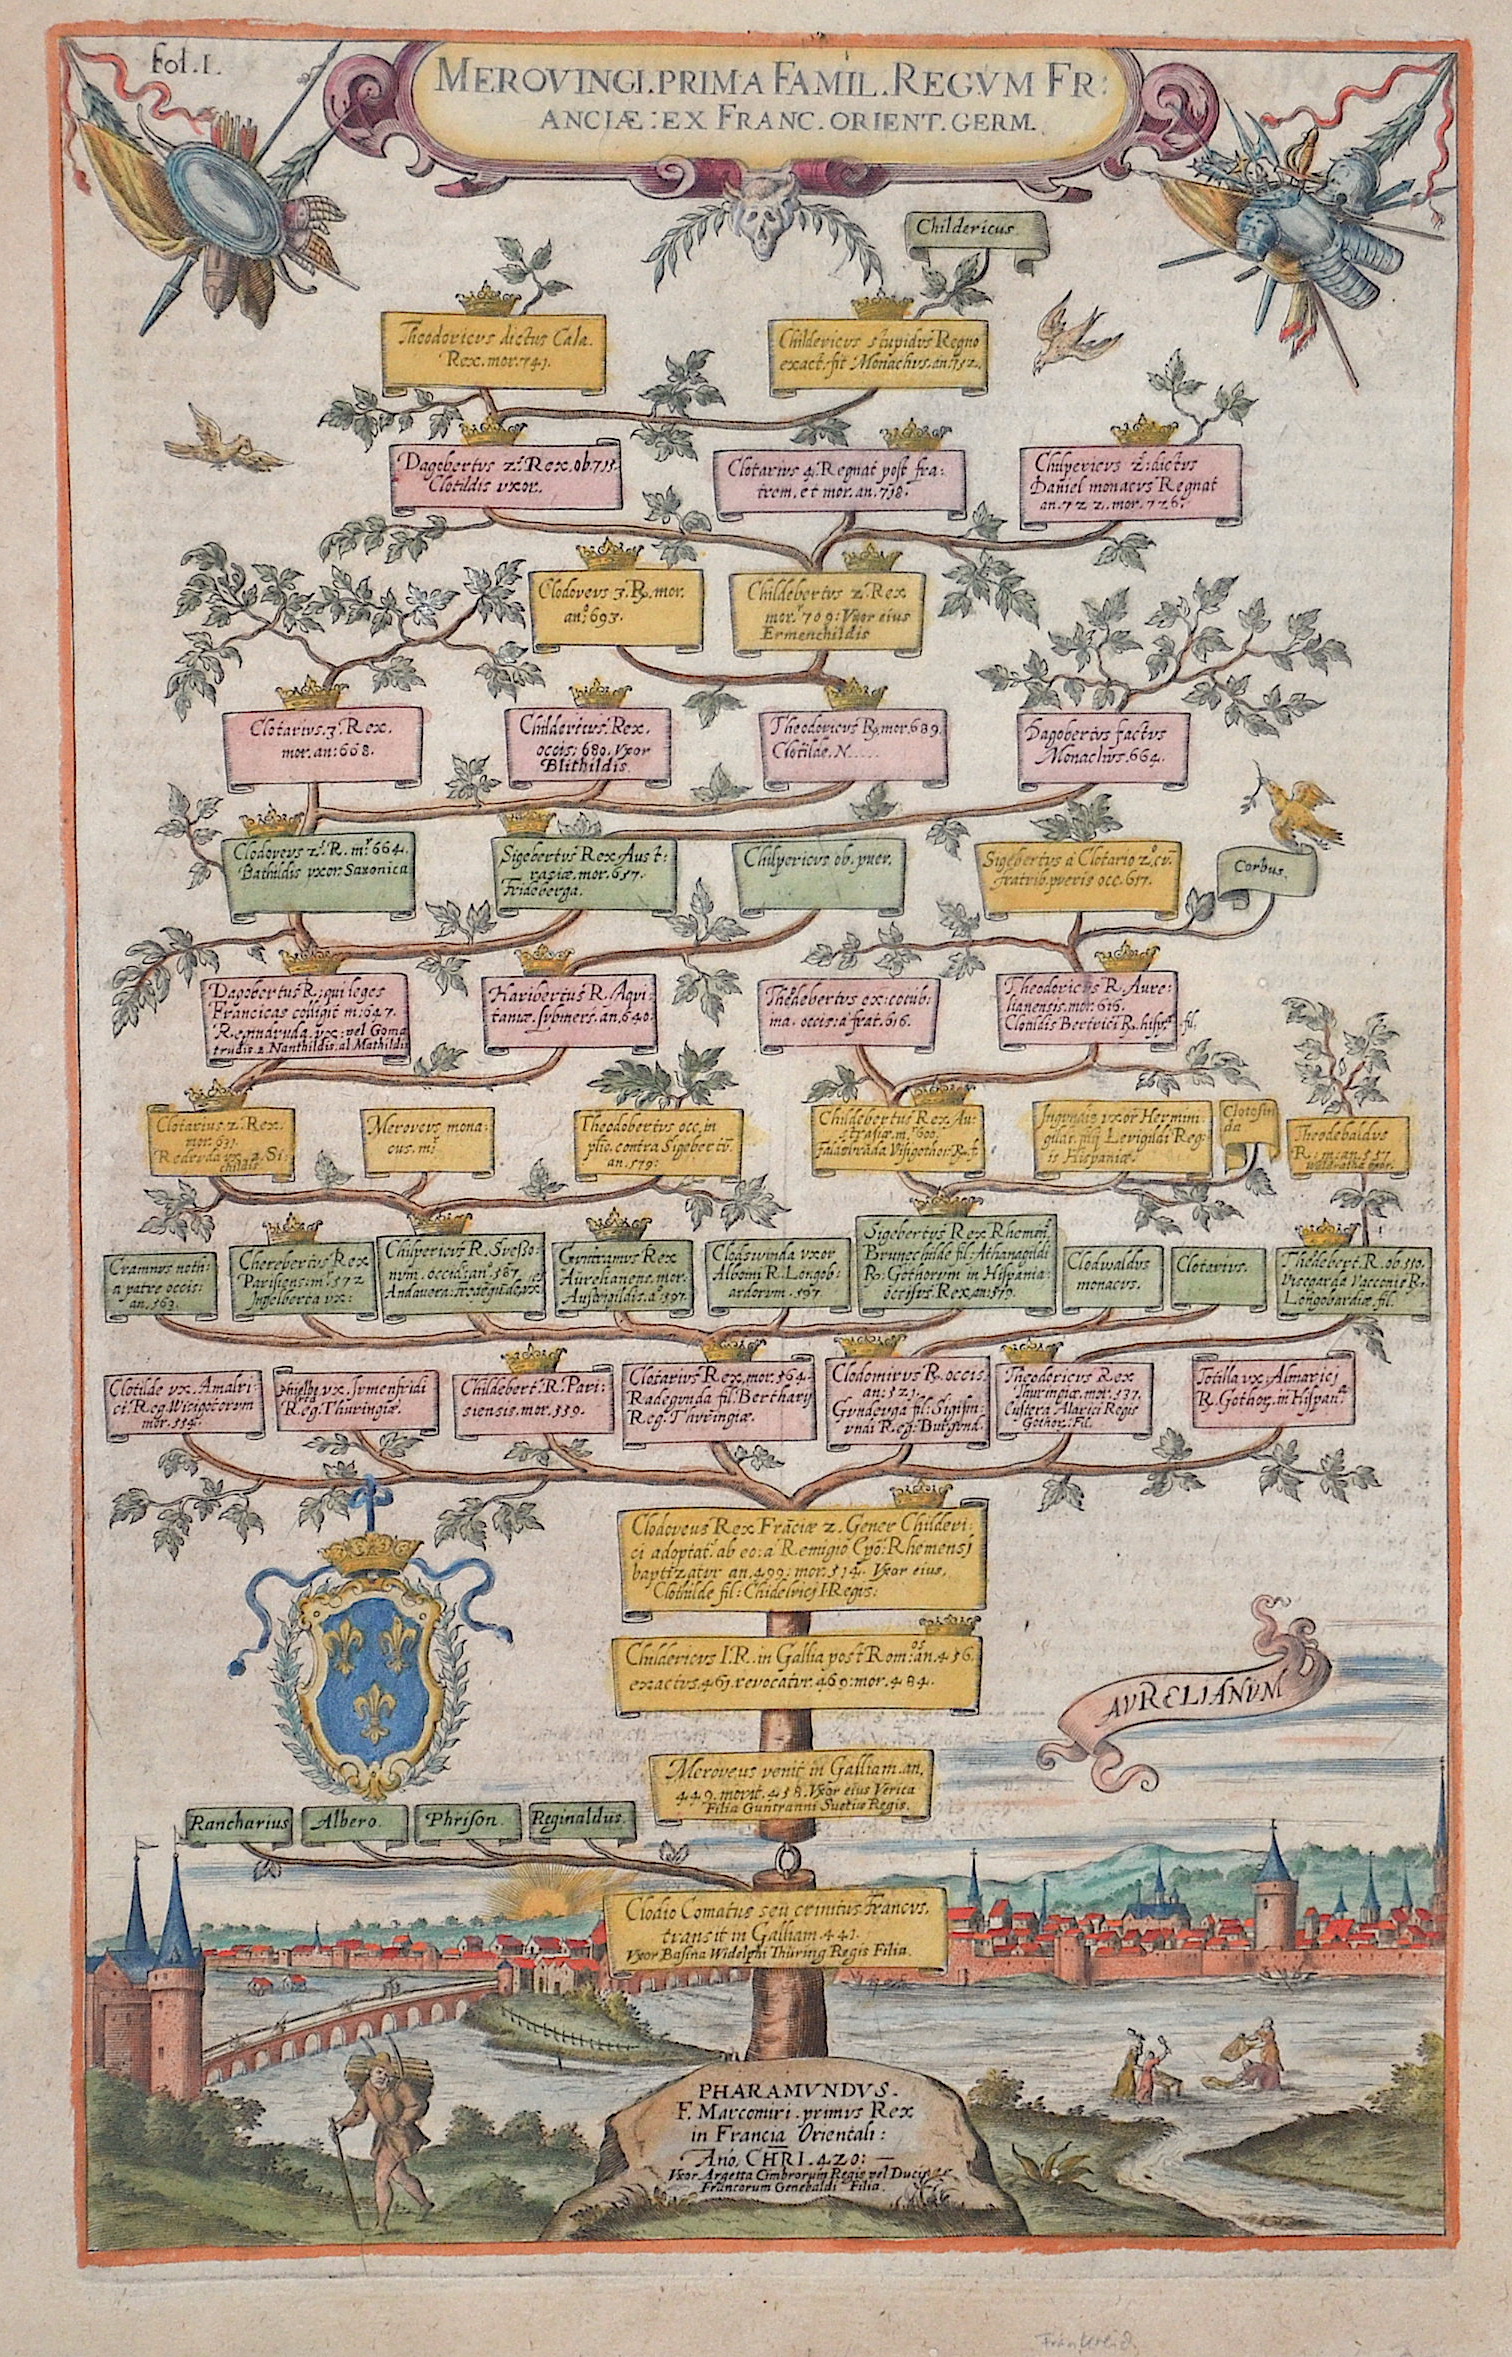 Fol. I.
MEROVINGI. PRIMA FAMIL. REGVM FR:
ANCIÆ: EX FRANC. ORIENT. GERM.
Childericus
Theodoricvs dictus Cala.
Rex. mor. 741.
Childericvs stupidvs Regno
exact. fit Monachvs. an. 752.
Dagobertvs 2. Rex. ob. 715.
Clotildis vxor.
Clotarivs 4. Regnat post fra:
trem. et mor. an. 718.
Chilpericvs 2: dictvs
Daniel monacvs Regnat
an. 722. mor. 726.
Clodovevs 3. R. mor.
an: 693.
Childebertvs 2. Rex
mor. 709: Vxor eius
Ermenchildis
Clotarivs. 3. Rex.
mor. an: 668.
Childericvs. Rex.
occis: 680. Vxor
Blithildis.
Theodoricvs R. mor. 689.
Clotilde. N.....
Dagobertvs factvs
Monachvs. 664.
Clodovevs 2. R. m. 664.
Bathildis vxor. Saxonica
Sigebertvs Rex Aust:
rasiæ. mor. 657.
Frideberga.
Chilpericvs ob. pver.
Sigebertvs a Clotario 2. cv̄
fratrib. pveris occ. 617.
Corbus.
Dagobertvs R: qui leges
Francicas colligit m: 647.
Regindrvda. vx: vel Goma
trudis. 2. Nanthildis. al Mathild
Haribertvs R. Aqvi:
taniæ. an. 640.
Theodebertvs ex: cocub:
ina. occis: a frat. 616.
Theodoricvs R. Aure:
lianensis. mor. 616.
Clotildis Bertrici R. fil,
Clotarivs. 2. Rex.
mor. 631.
vx. 2. Si
childis
Merovevs. mona:
cus. m
Theodobertvs occ. in
plio. contra Sigebertv̄.
an. 579:
Childebertvs Rex Au:
strasiæ. m. 600.
Ingvndis vxor Hermini
gildi. Levigildi Reg:
is Hispaniæ.
Clotosin
da
Theodebaldvs
R: m: an. 557
Cramnus noth:
a patre occis:
an. 563.
Cherebertvs Rex
Parisiens: m. 572
Ingelberta vx:
Chilpericvs R. Svesso:
nvm. occid: an. 587.
Andavera:
Gvntramvs Rex
Aurelianens. mor.
Avstrigildis. a. 597.
Clodswinda vxor
Alboini R. Longob:
ardorvm. 597.
Sigebertvs Rex Rhemm
Brunechilde fil. Athanagildi
R: Gothorvm in Hispania:
occisvs Rex. an: 579.
Clodwaldvs
monacvs.
Clotarivs.
Thedebert. R. ob. 550.
Visegarda Vacconis R:
Longobardiæ. fil.
Clotilde vx. Amalri:
ci. Reg. Wisigotorvm
mor. 534.
vx. Irmenfridi
Reg. Thuringiæ.
Childebert. R. Pari:
siensis. mor. 559.
Clotarivs Rex, mor. 564.
Radegvnda fil. Bertharij
Reg: Thvringiæ.
Clodomirvs R. occis.
an: 521.
Gvndevga fil. Sigism:
vndi Reg: Burgvnd.
Theodoricvs Rex
Thuringiæ. mor. 537.
Custera Alarici Regis
Gothor: Fil.
Totilla vx. Almarici
R. Gothor. in Hispan:
Clodoveus Rex Frāciæ 2. Gener Childeri:
ci adoptat. ab eo: a Remigio Epō: Rhemensi
baptizatvr an. 499: mor. 514. Vxor eius.
Clothilde fil: Chidelrici I Regis:
Childericvs I. R. in Gallia post Rom:os an. 456.
exactvs. 461. revocatvr. 469: mor. 484.
Meroveus venit in Galliam. an.
449. morit. 458. Vxor eius Verica
Filia Guntranni Suetiæ Regis.
AVRELIANVM
Rancharius
Albero.
Phrison.
Reginaldus.
Clodio Comatus seu crinitus Francvs.
transit in Galliam. 441.
Vxor Basina Widelphi Thüring Regis Filia.
PHARAMVNDVS.
F. Marcomiri. primus Rex
in Francia Orientali:
Año, CHRI. 420:
Vxor Argetta Cimbrorum Regis vel Ducis
Francorum Genebaldi Filia.
Frankreich